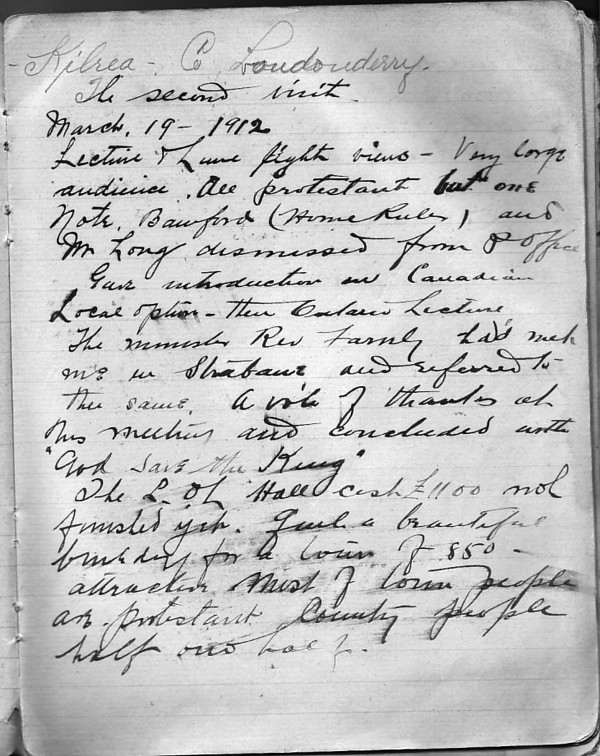 - Kilrea - Co Londonderry.
The second visit.
March. 19 - 1912
Lecture & Lime light views - Very large
audience. All protestant but one
Note. Bamford (Home Ruler) and
Mr Long dismissed from P Office
Gave introduction on Canadian
Local option - then Ontario Lecture
The minister Rev Farnly had met
me in Strabane and referred to
the same. A vote of thanks at
this meeting and concluded with
"God Save the King"
The L. Ol Hall cost £1100 not
finished yet. Quite a beautiful
building for a town of 850 -
attractive Most of town people
are protestant County people
half and half.